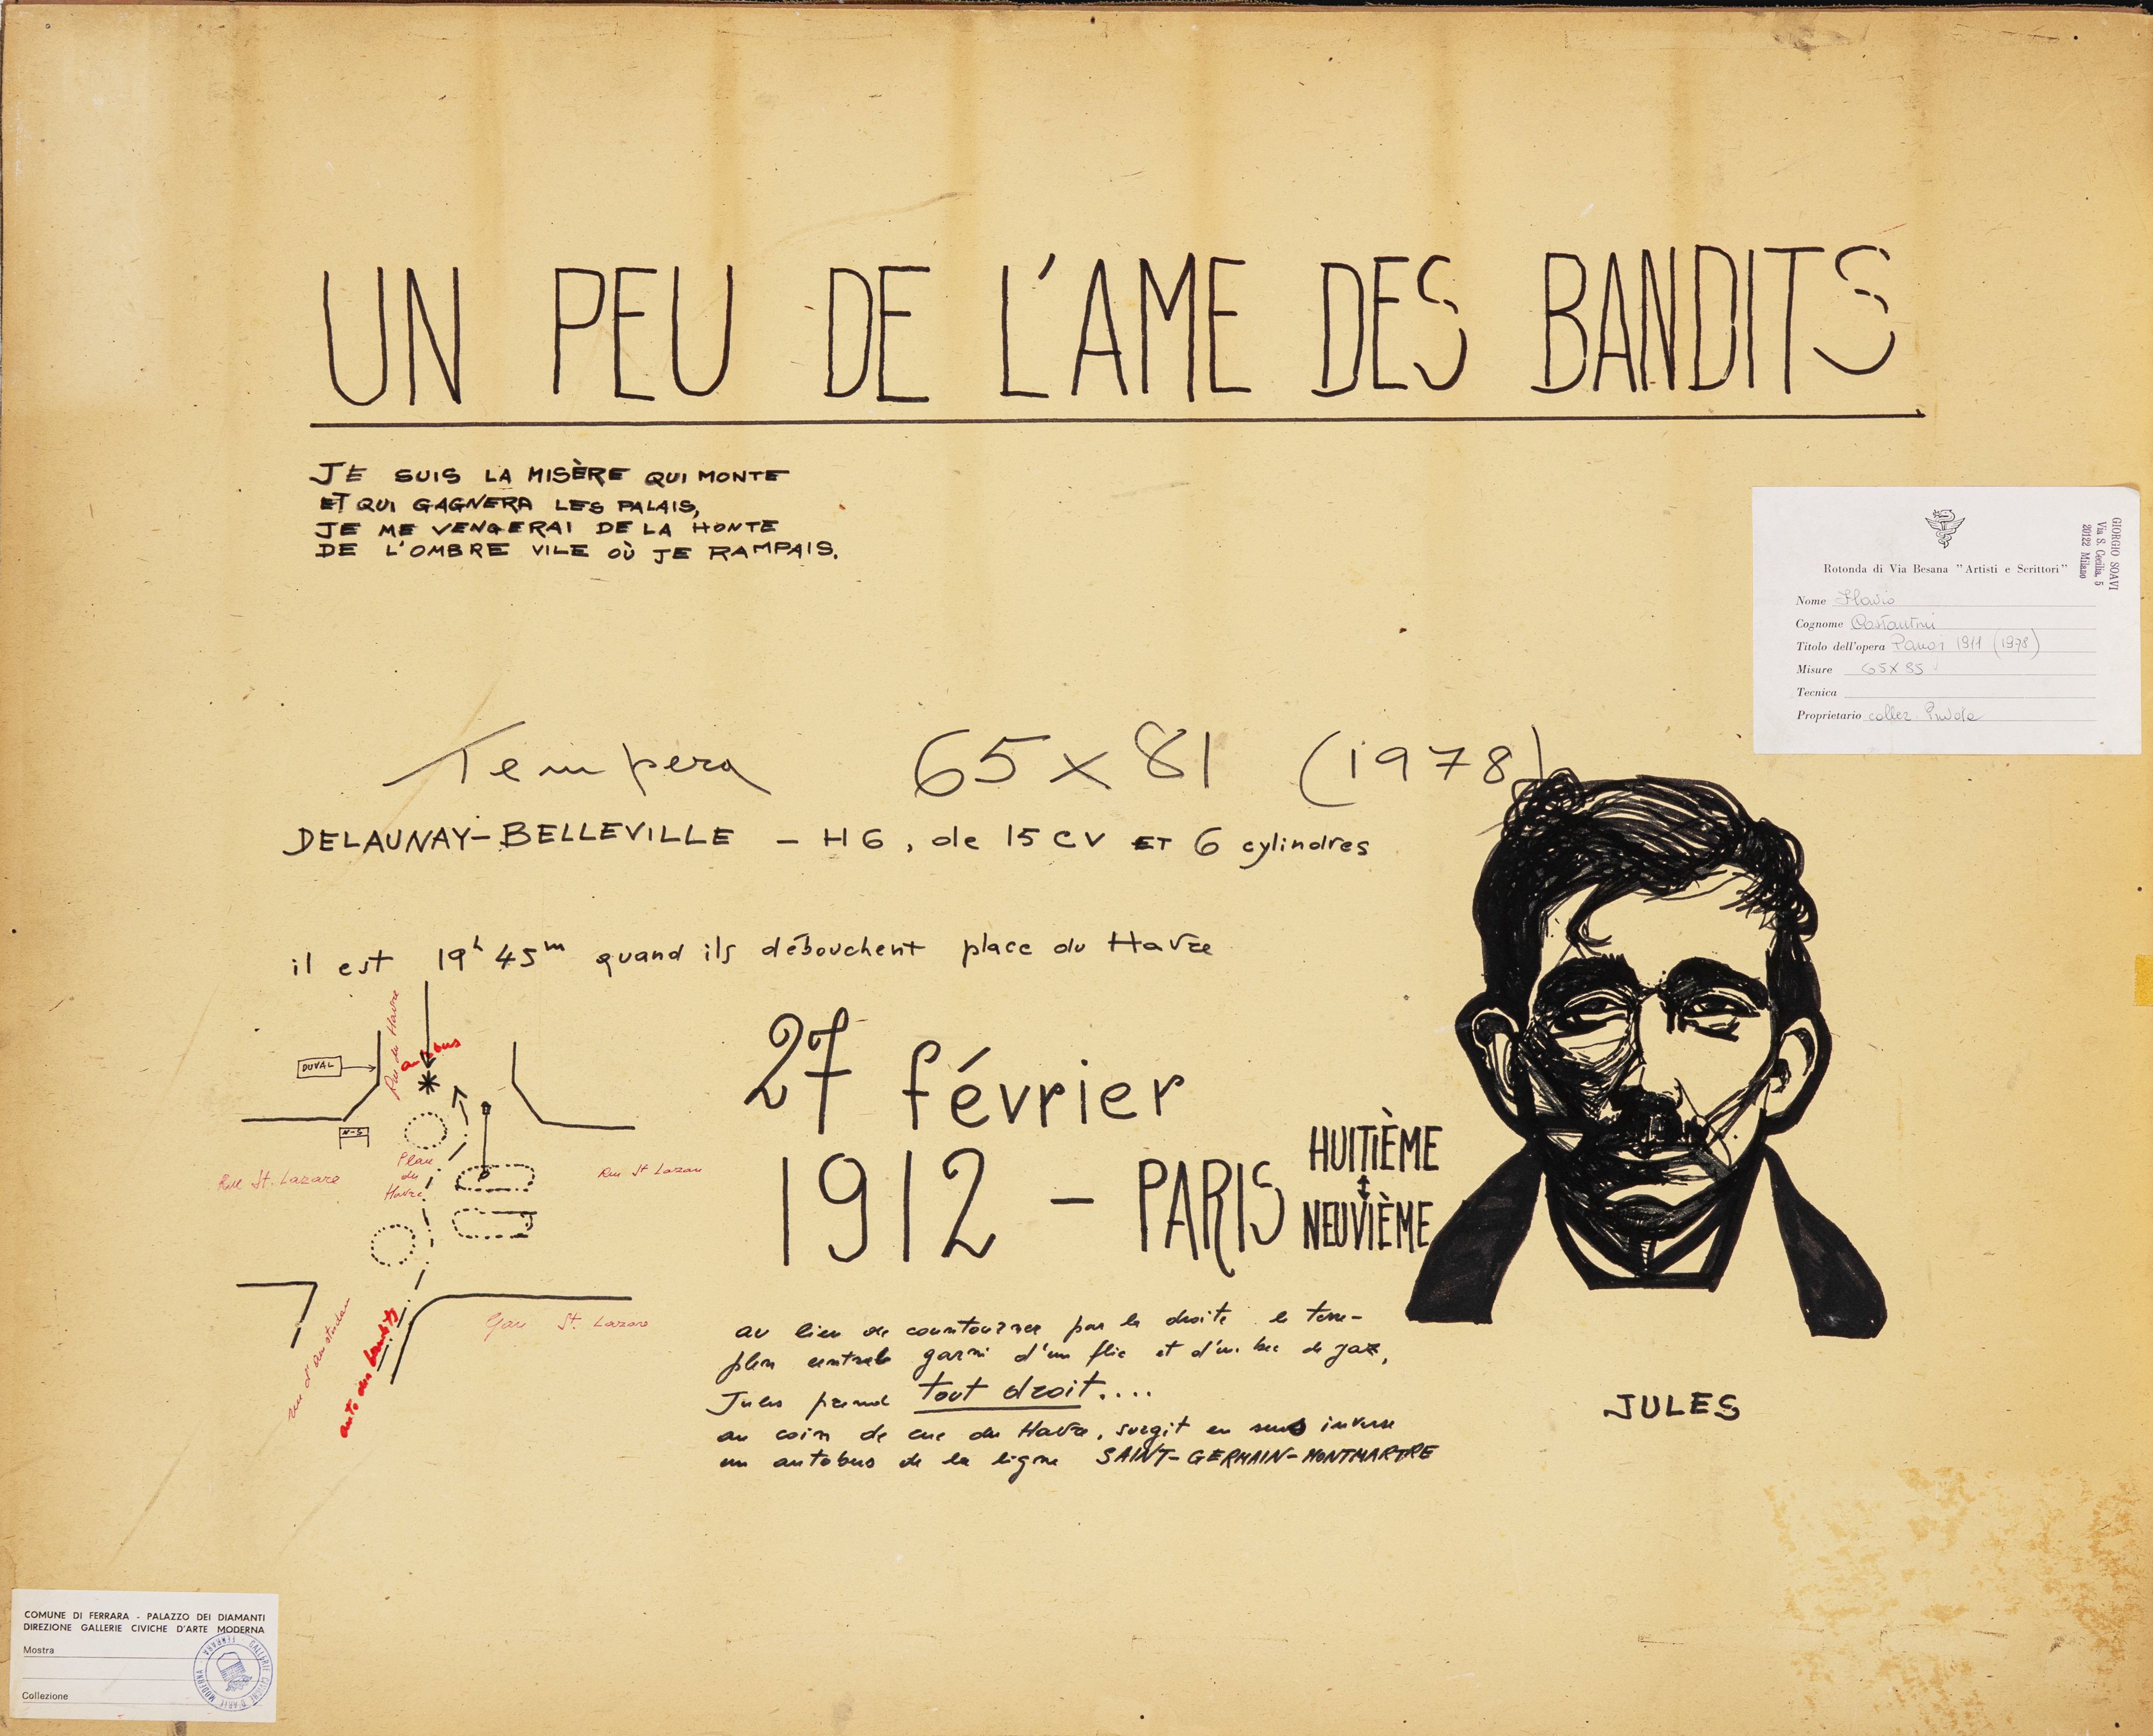 UN PEU DE L'AME DES BANDITS
JE SUIS LA MISÈRE QUI MONTE
ET QUI GAGNERA LES PALAIS,
JE ME VENGERAI DE LA HONTE
DE L'OMBRE VILE OÙ JE RAMPAIS.
GIORGIO SOAVI
Via S. Cecilia, 5
20122 Milano
Rotonda di Via Besana "Artisti e Scrittori"
Nome Flavio
Cognome Costantini
Titolo dell'opera 1911 (1978)
Misure 65X85
Tecnica
Proprietario collez. Privata
Tempera 65×81 (1978)
DELAUNAY-BELLEVILLE - H6, de 15 CV ET 6 cylindres
il est 19h 45m quand ils débouchent place du Havre
Rue du Havre
autobus
DUVAL
N-S
Rue St. Lazare
Place du Havre
Rue St Lazare
Gare St. Lazare
rue d'Amsterdam
auto des bandits
27 février
1912 - PARIS
HUITIÈME
NEUVIÈME
au lieu de countourner par la droite le terre-
plein centrale garni d'un flic et d'un bec de gaz,
Jules prend tout droit....
au coin de rue du Havre, surgit en sens inverse
un autobus de la ligne SAINT-GERMAIN-MONTMARTRE
JULES
COMUNE DI FERRARA - PALAZZO DEI DIAMANTI
DIREZIONE GALLERIE CIVICHE D'ARTE MODERNA
Mostra
Collezione
GALLERIE CIVICHE D'ARTE MODERNA FERRARA